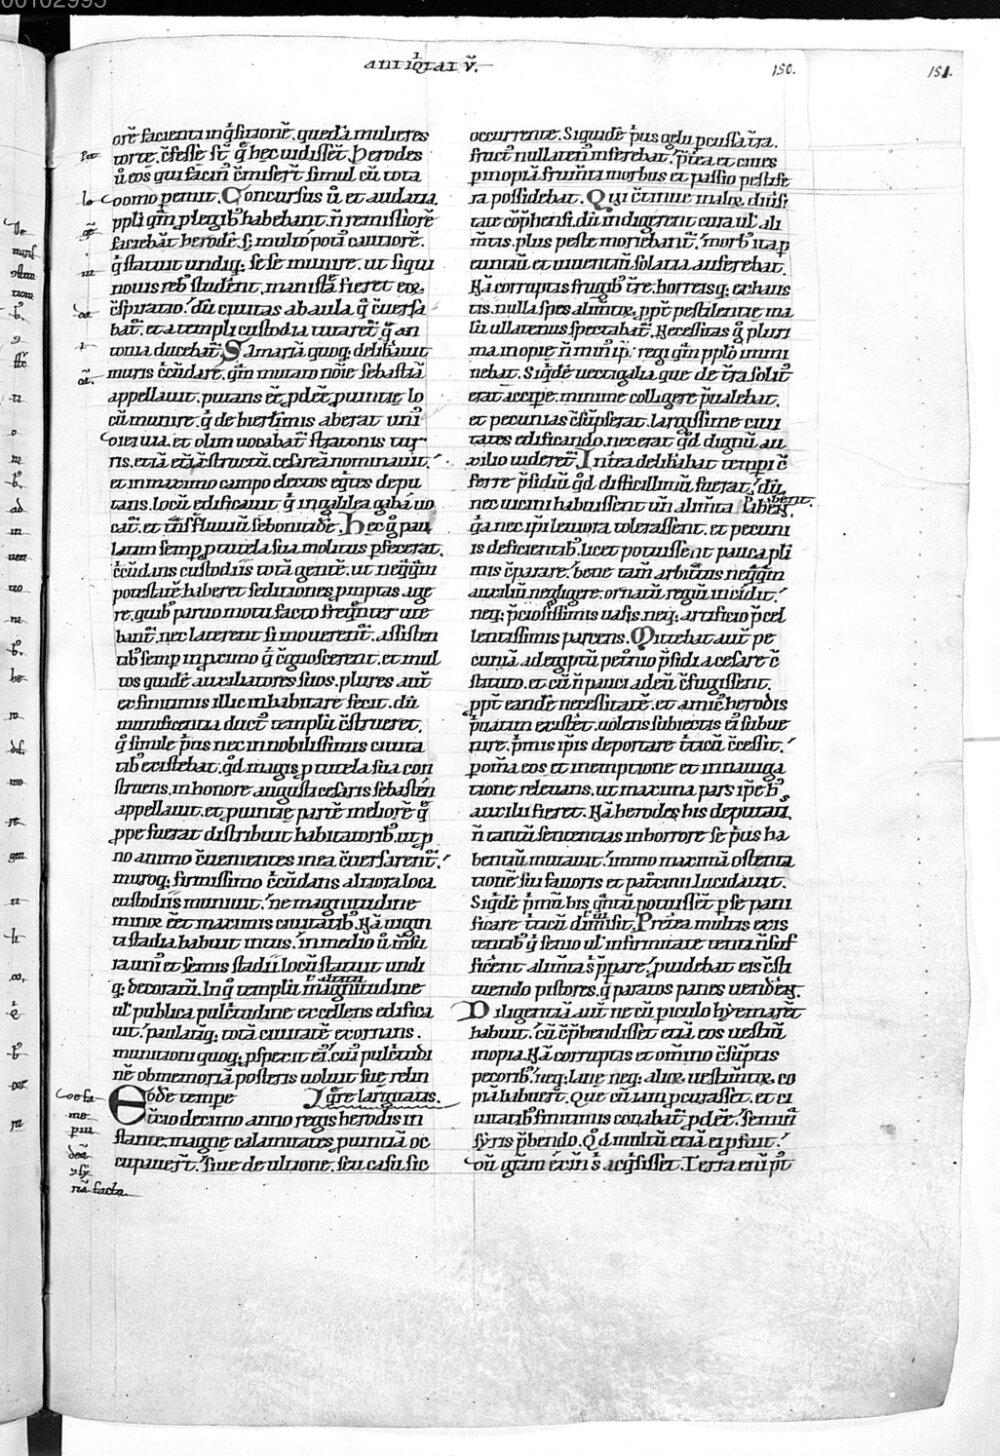 antiq̇tat v̄.
150.
151.
orē facienti inq̇sitionē. quedā mulieres
torte. c̄fessę st̄ q̄ hec uidissēt. Herodes
ū eos qui facin̄ c̄misert̄ simul cū tota
domo peniit. Concursus ū et audatia
ppl̄i qm̄ p legibꝰ habebant. n̄ remissiorē
faciebāt herodē. s; multo poti᷒ cautiorē.
q̇ statuit undiq; sese munire. ut siqui
nouis rebꝰ student̄. manifesta fieret eoꝝ
c̄spiratio. dū ciuitas ab aula q̄ c̄uersa
bat᷑. et a templi custodia tutaret᷑ q̄ an
tonia ducebat᷑. Samariā quoq; delibauit
muris c̄cūdare. qm̄ mutato noīe sebastiā
appellauit. putans eē pdeē puintię lo
cū munire. q̇ de hierl̄imis aberat uni᷒
diei uia. et olim uocabat᷑ stratonis tur
ris. etiā c̄structū. cesareā nominauit.
et in maximo campo electos eq̇tes depu
tans. locū edificauit q̇ in galilea gaba uo
cat᷑. et trāsfluuiū sebonitidē. Hec q̄ pau
latim semp p tutela sua molitus pfecerat.
c̄cūdans custodiis totā gentē. ut neq̇q̄m
potestatē haberet seditiones pmptas age
re. quibꝰ paruo motu facto freq̄nter ute
bant᷑. nec laterent si mouerent᷑. assisten
tibꝰ semp in pximo q̇ c̄gnoscerent. et mul
tos quidē auxiliatores suos. plures aut̄
ex finitimis illic inhabitare fecit. dū
munificentia duct᷒ templū c̄strueret.
q̇ simile p̄us nec in nobilissimis ciuita
tibꝰ existebat. qd̄ magis p tutela sua con
struens. in honore augusti cesaris sebastēn
appellauit. et puintię partē meliorē q̄
ppe fuerat distribuit habitatoribꝰ. ut p
no animo c̄uenientes in ea c̄uersarent᷑.
muroq; firmissimo c̄cūdans altiora loca
custodiis muniuit. ne magnitudine
minor ēet maximis ciuitatibꝰ. Nā uigin
ti stadia habuit intus. in medio ū insu
ra uni᷒ et semis stadii. locū statuit undi
q; decoratū. In q̇ templū magnitudine
ul᷑ publica pulc̄tudine excellens edifica
uit. paulatīq; totā ciuitatē exornans.
munitioni quoq; pspexit ei᷒. cui᷒ pulc̄tudi
nē ob memoriā posteris uoluit suę relin
Eodē tempe q̇re largitatis.
Tertio decimo anno regis herodis in
stante. magnę calamitates puintiā oc
cupauert̄. siue de ultione. seu casu sic
de fa
me
p iu
deā
⁊ sy
riā facta
occurrente. Siquidē p̄us gelu pcussa tr̄a.
fruct᷒ nullaten᷒ inferebat. p̄tea et ciues
p inopiā frum̄ti morbus et passio pestife
ra possidebat. Qui c̄tinue maloꝝ diūsi
tate c̄p̄hensi. dū indigerent cura ul᷑ ali
m̄tis. plus peste moriebant᷑. morbꝰ ita p
euntiū et uiuentiū solatia auferebat.
Nā corruptis frugibꝰ tr̄e. horreisq; exhaus
tis. nulla spes alim̄toꝝ. ppt̄ pestilentię ma
lū ullatenus spectabat᷑. Necessitas q̄ pluri
ma inopię n̄ min᷒ ip̄i regi qm̄ pplo immi
nebat. Siq̇dē uectigalia que de tr̄a solit᷒
erat accipe. minime colligere p̄ualebat.
et pecunias c̄sūpserat. largissime ciui
tates edificando. nec erat qd̄ dignū au
xilio uideret᷑. Int̄ea delibabat tempi c̄
ferre p̄sidiū. qd̄ difficillimū fuerat. dū
nec uicini habuissent un̄ alim̄ta p̄berēt.
q̄a nec ip̄i leuiora tolerassent. et pecuni
is deficientibꝰ. licet potuissent pauca pli
mis c̄parare. bene tam̄ arbitᷓtus neq̇q̄m
auxiliū negligere. ornatū regiū incidit.
neq; p̄ciosissimis uasis. neq; artificio p̄cel
lentissimis parcens. Mittebat aut̄ pe
cuniā ad egiptū petronio p̄sidi a cesare c̄
stituto. et cū n̄ pauci ad eū c̄fugissent.
ppt̄ eandē necessitatē. et amic᷒ herodis
p̄uatim existēs. uolens subiectis ei᷒ subue
nire. p̄mis ip̄is deportare t̄ticū c̄cessit.
p om̄ia eos et in emptione et in nauiga
tione releuans. ut maxima pars ip̄e hꝰ
auxilii fieret. Nā herodes his deputatis.
n̄ tantū sententias in horrore se p̄us ha
bentiū mutauit. immo maximā ostenta
tionē sui fauoris et pat̄cinii lucidauit.
Siq̇dē p̄mū his q̇ntū potuissēt p se pani
ficare t̄ticū dimisit. Pretea multis exis
tentibꝰ q̇ senio ul᷑ infirmitate tenti n̄ suf
ficerēt alim̄ta s̄ p̄parare. puidebat eis c̄sti
tuendo pistores. q̇ paratos panes uenderēt.
Diligentiā aut̄ ne cū piculo hyemarēt
habuit. cū c̄p̄hendisset etiā eos uestiū
inopia. Nā corruptis et om̄ino c̄sūptis
pecoribꝰ. neq; lanę neq; alioꝝ uestim̄toꝝ co
piā habuert̄. Que cū iam pcurasset. et ci
uitatibꝰ finitimis conabat᷑ pdeē. semin̄
syris p̄bendo. Qd̄ multū etiā ei pfuit.
dū gr̄am exin̄ s̄ acq̇sisset. Terra eni᷒ pt̄